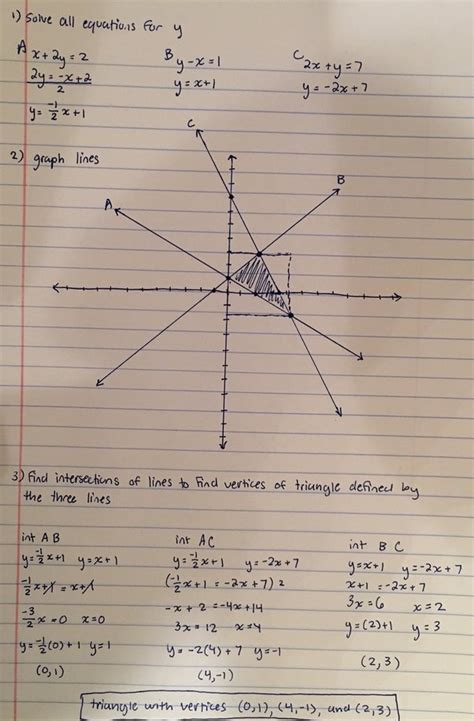 1) Solve all equations for y
A x+2y=2
2y=-x+2
2
y=-1/2x+1
B y-x=1
y=x+1
C 2x+y=7
y=-2x+7
2) graph lines
C
B
A
3) Find intersections of lines to find vertices of triangle defined by
the three lines
int AB
y=-1/2x+1 y=x+1
-1/2x+1=x+1
-3/2x=0 x=0
y=-1/2(0)+1 y=1
(0,1)
int AC
y=-1/2x+1 y=-2x+7
(-1/2x+1=-2x+7)2
-x+2=-4x+14
3x=12 x=4
y=-2(4)+7 y=-1
(4,-1)
int BC
y=x+1 y=-2x+7
x+1=-2x+7
3x=6 x=2
y=(2)+1 y=3
(2,3)
triangle with vertices (0,1), (4,-1), and (2,3)